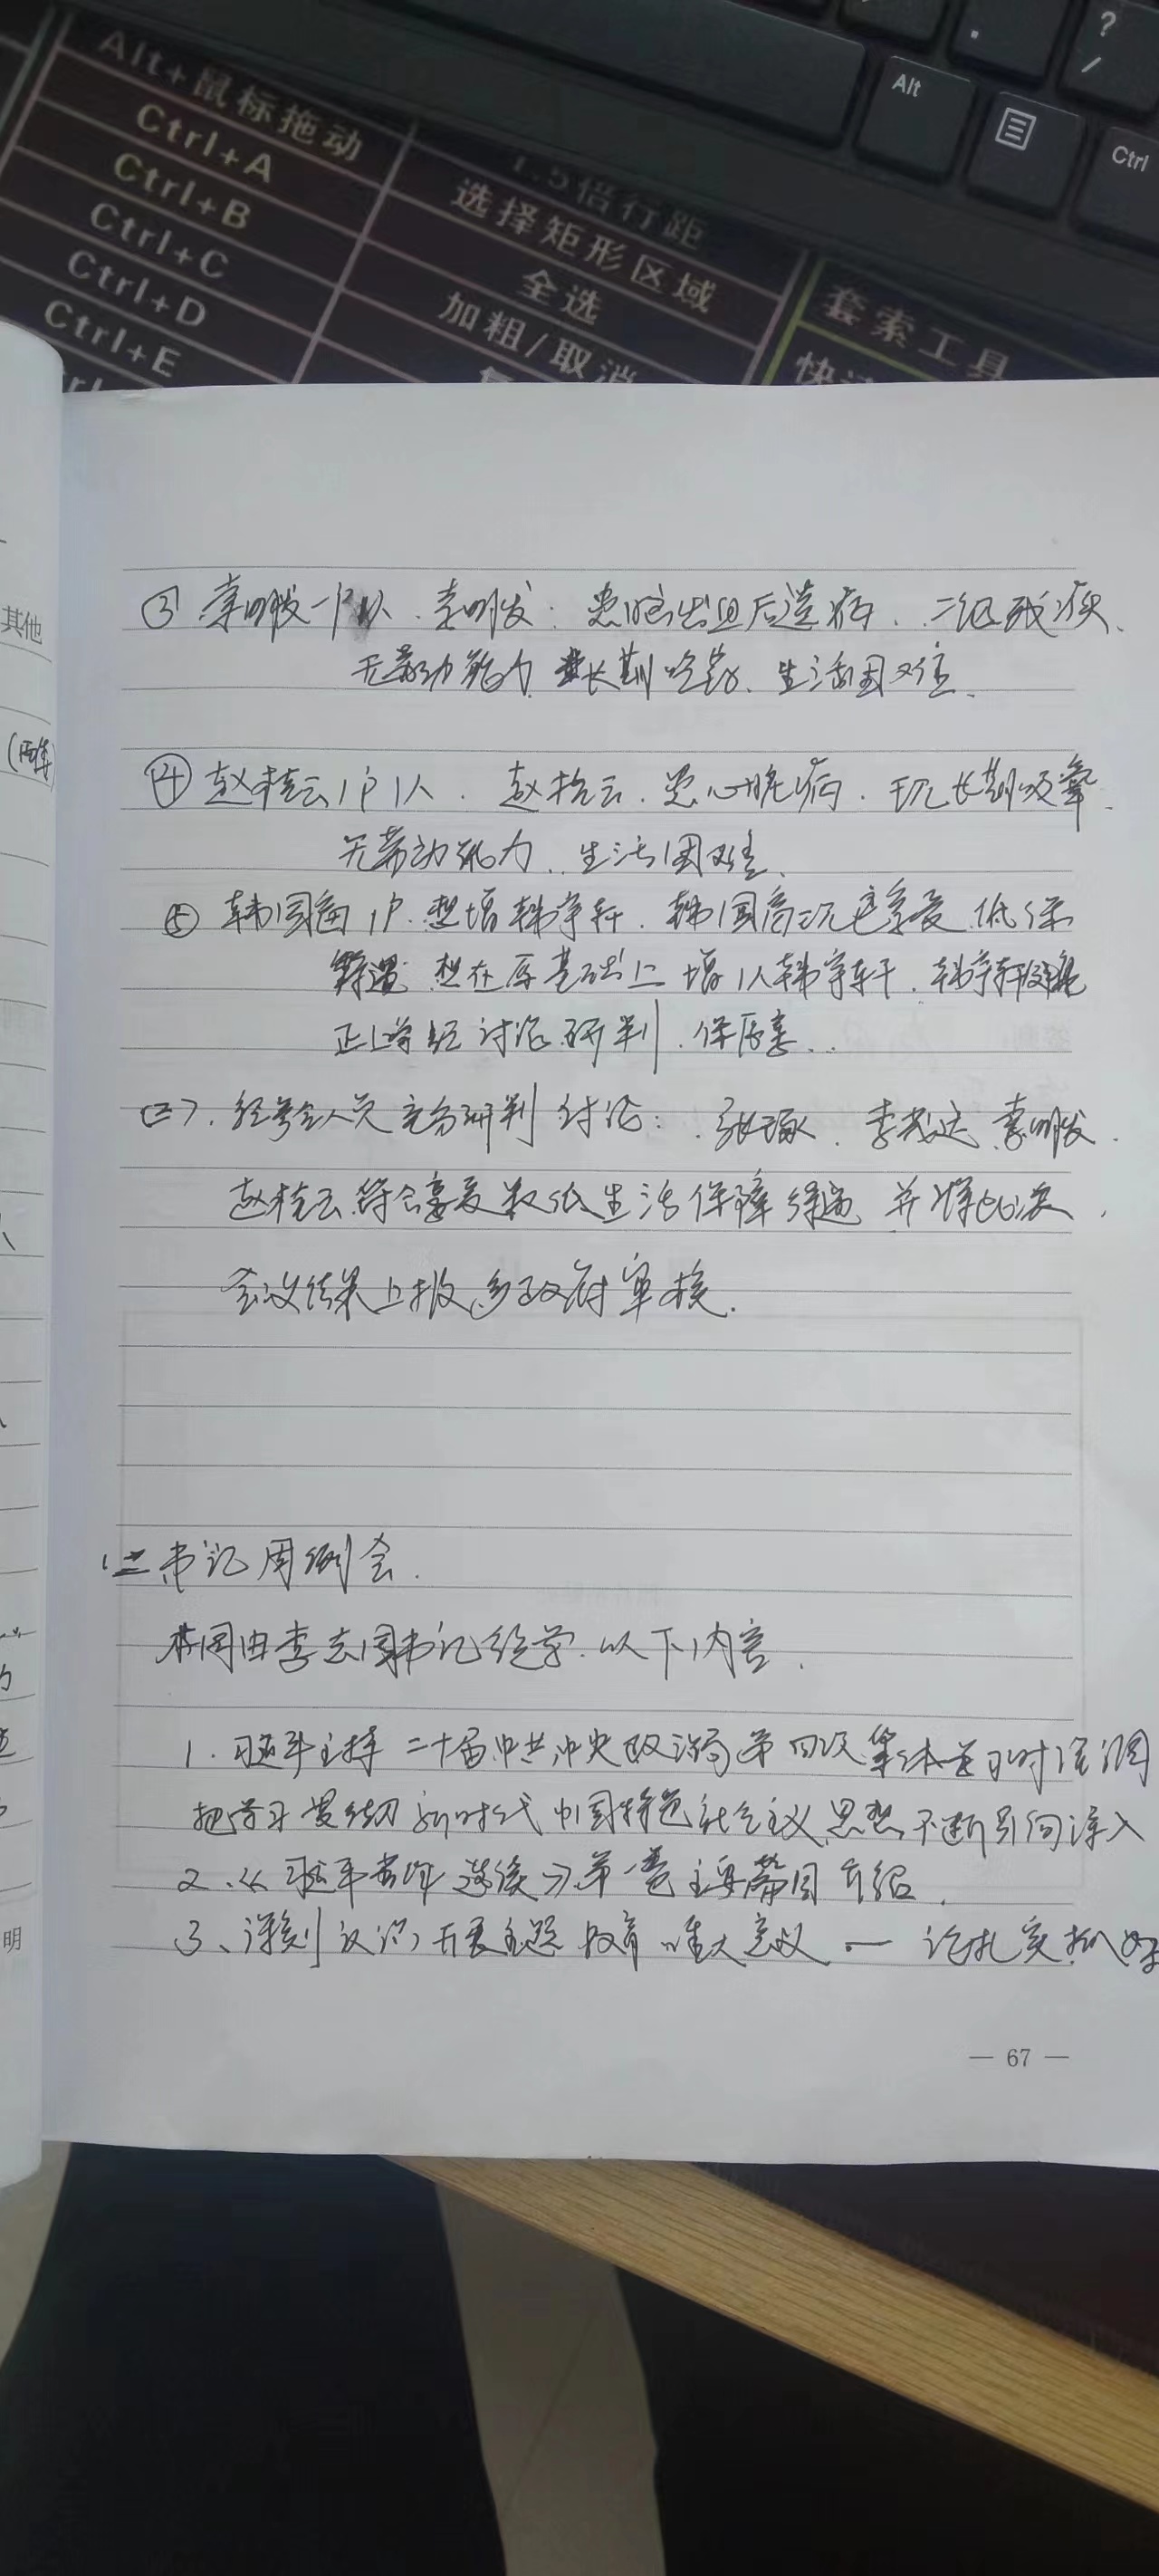 Alt+鼠标拖动
Ctrl+A
Ctrl+B
Ctrl+C
Ctrl+D
Ctrl+E
1.5倍行距
选择矩形区域
全选
加粗/取消
套索工具
Alt
Ctrl
?
/
其他
明
③ 李明发一户1人、李明发:患脑出血后遗病、二级残疾、
无劳动能力 长期吃药、生活困难、
④ 赵桂云1户1人、赵桂云、患心脏病、现长期吸氧、
无劳动能力、生活困难、
⑤ 韩国富1户、想增韩宇轩、韩国富现已享受低保
待遇 想在原基础上增1人韩宇轩、韩宇轩
正上学 经讨论研判、保原意、
(二)、经参会人员充分研判讨论:张琢、李茂远、李明发、
赵桂云符合享受最低生活保障待遇 并将此次
会议结果上报乡政府审核、
二 书记周例会、
本周由李志国书记领学 以下内容、
1、习近平主持二十届中共中央政治局第四次集体学习时强调
把学习贯彻新时代中国特色社会主义思想不断引向深入
2、《习近平著作选读》第一卷主要篇目介绍、
3、深刻认识开展主题教育重大意义 — 论扎实抓好
— 67 —